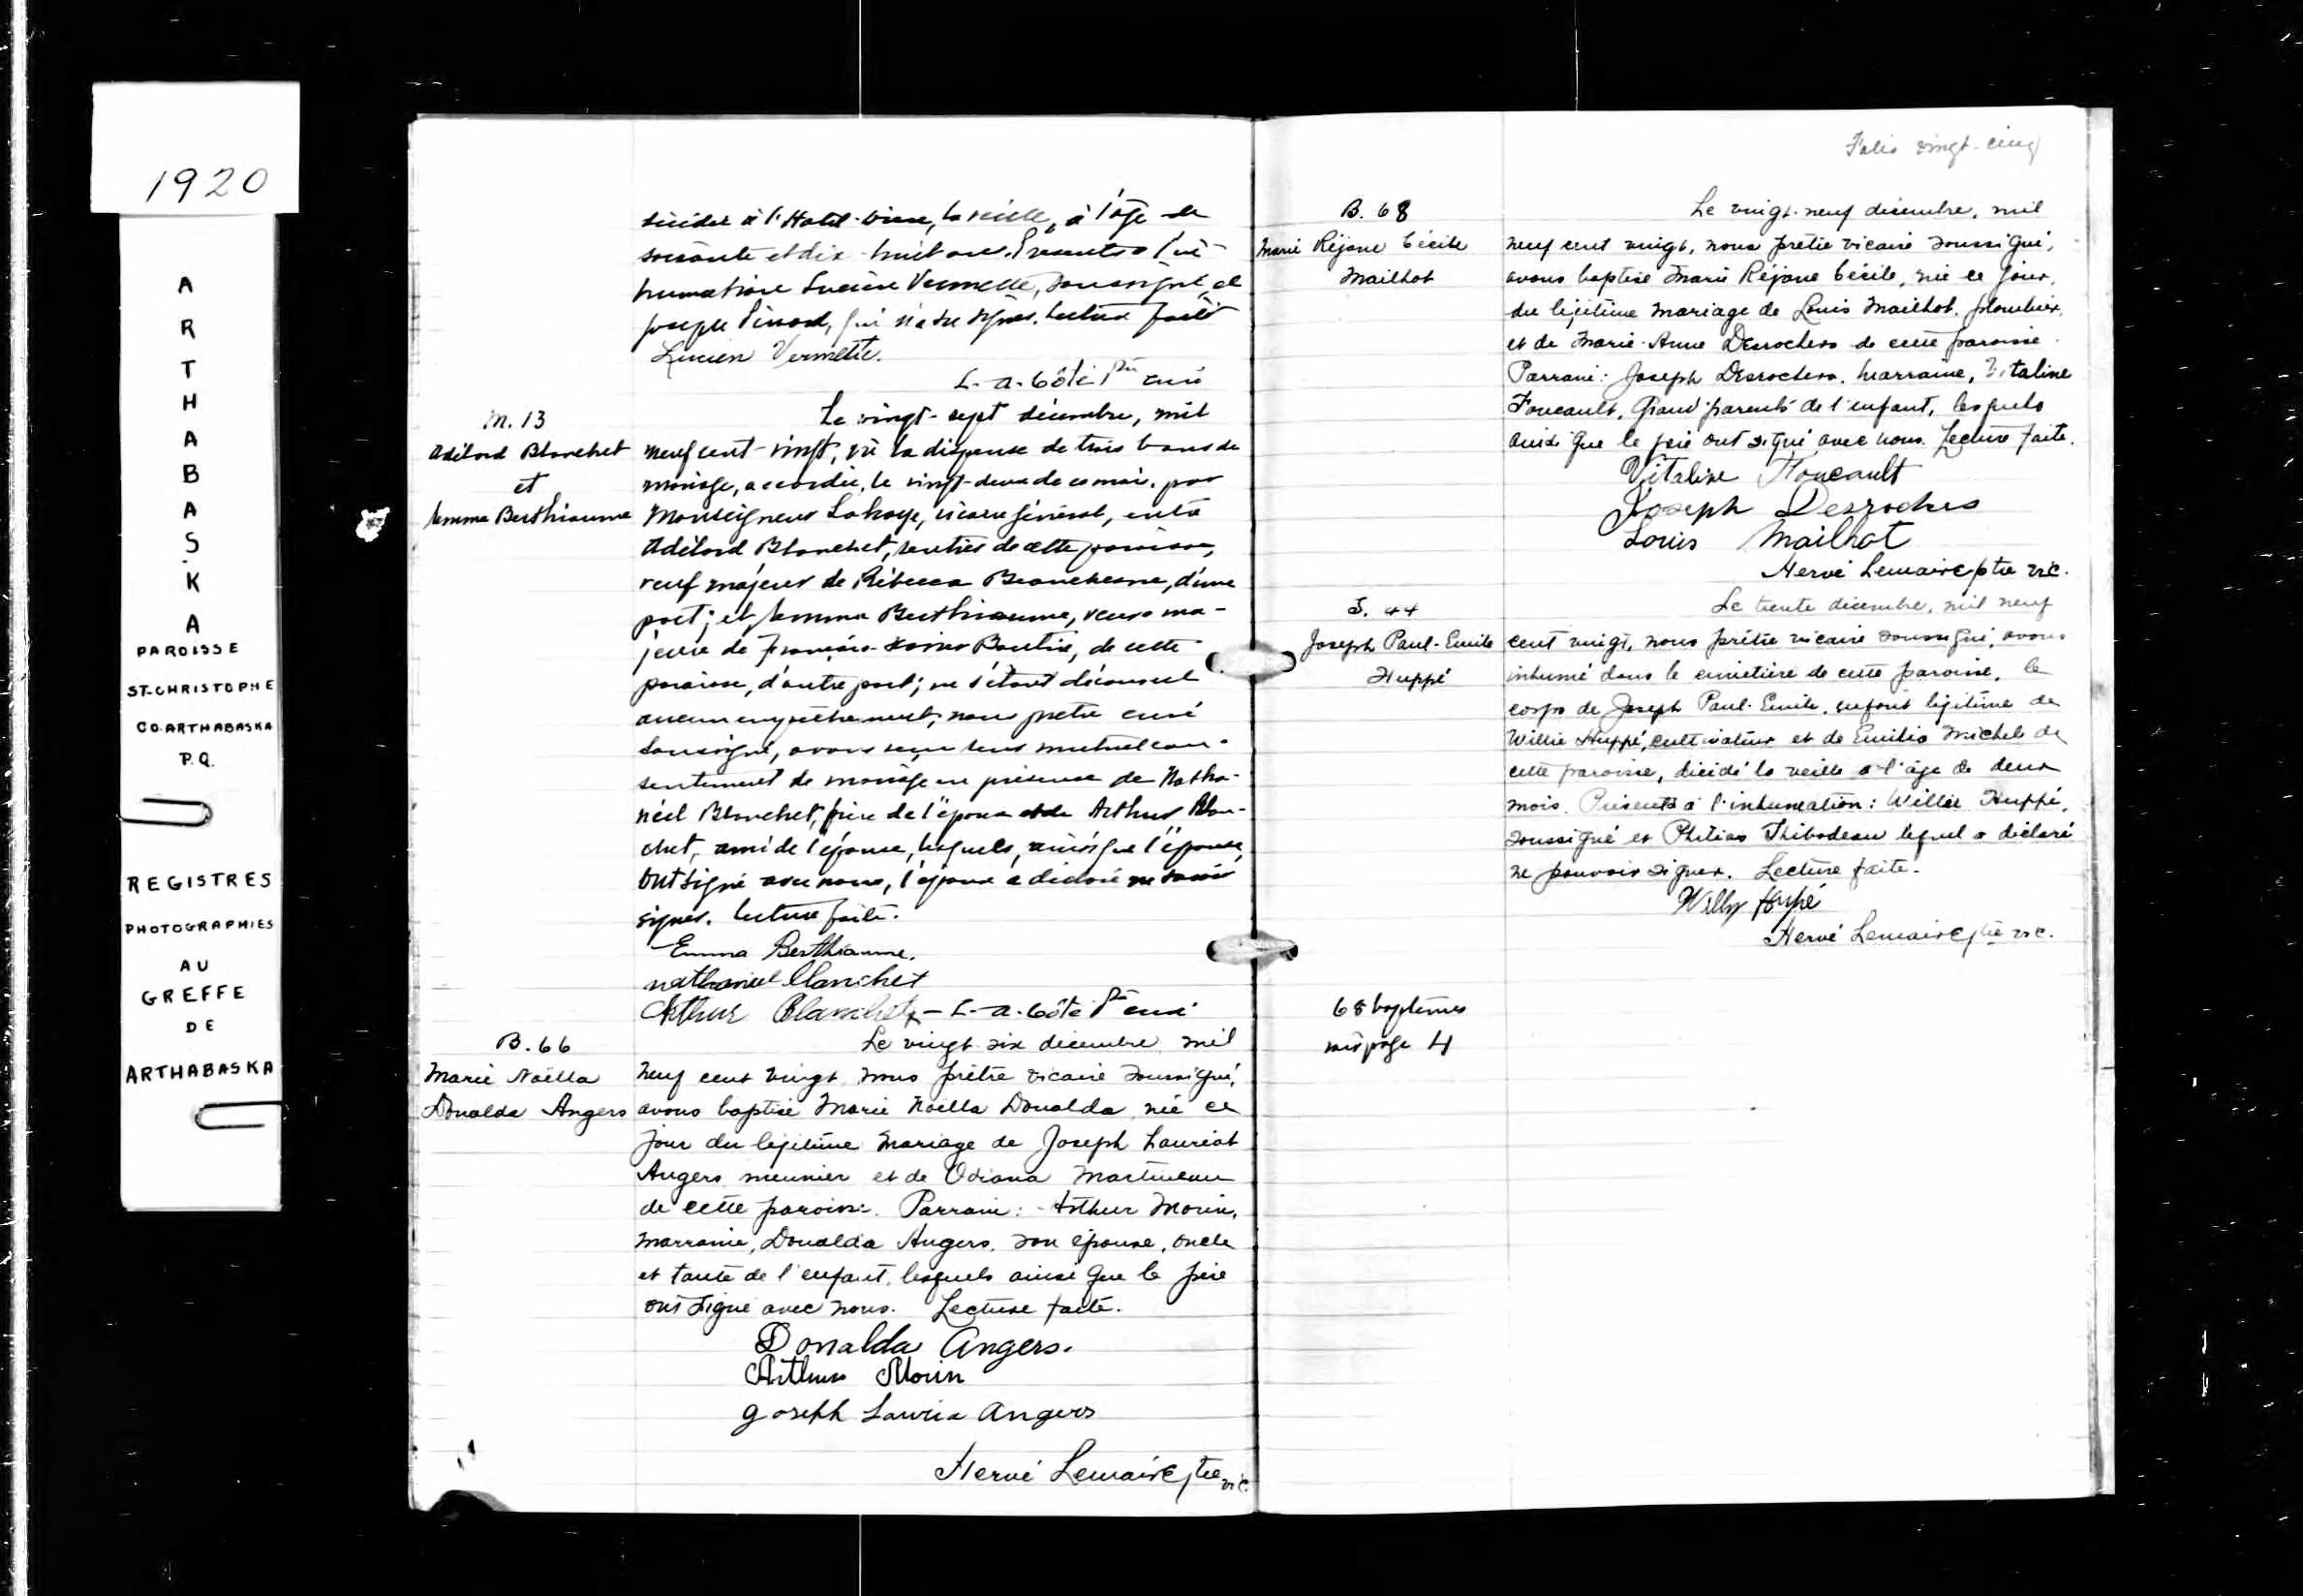 1920
A
R
T
H
A
B
A
S
K
A
PAROISSE
ST-CHRISTOPHE
CO. ARTHABASKA
P.Q.
REGISTRES
PHOTOGRAPHIES
AU
GREFFE
DE
ARTHABASKA
décidée à l'Hotel-Dieu, la veille, à l'âge de
soixante et dix-huit ans. Présents à l'in-
humation Lucien Vermette, soussigné, et
Joseph Pinard, qui n'a su signer. Lecture faite
Lucien Vermette.
L.-A. Côté Ptre curé
M. 13
Adélard Blanchet
et
Emma Berthiaume
Le vingt-sept décembre, mil
neuf cent-vingt, vû la dispense de trois bans de
mariage, accordée, le vingt-deux de ce mois, par
Monseigneur Lahaye, vicaire général, entre
Adélard Blanchet, rentier de cette paroisse,
veuf majeur de Rébecca Beauchesne, d'une
part; et Emma Berthiaume, veuve ma-
jeure de François-Xavier Boutin, de cette
paroisse, d'autre part; ne s'étant découvert
aucun empêchement, nous prêtre curé
soussigné, avons reçu leur mutuel con-
sentement de mariage en présence de Natha-
néel Blanchet, frère de l'époux et de Arthur Blan-
chet, ami de l'épouse, lesquels, ainsi que l'épouse,
ont signé avec nous, l'époux a déclaré ne savoir
signer. Lecture faite.
Emma Berthiaume.
nathaniel Blanchet
Arthur Blanchet - L.-A. Côté Ptre curé
B. 66
Marie Noëlla
Donalda Angers
Le vingt six décembre mil
neuf cent vingt nous prêtre vicaire soussigné,
avons baptisé Marie Noëlla Donalda née ce
jour du légitime mariage de Joseph Lauréat
Angers meunier et de Odiana Martineau
de cette paroisse. Parrain: Arthur Morin,
marraine, Donalda Angers, son épouse, oncle
et tante de l'enfant, lesquels ainsi que le père
ont signé avec nous. Lecture faite.
Donalda Angers.
Arthur Morin
Joseph Lauria Angers
Hervé Lemaire ptre vic.
Folio vingt-cinq
B. 68
Marie Réjane Cécile
Mailhot
Le vingt-neuf décembre, mil
neuf cent vingt, nous prêtre vicaire soussigné,
avons baptisé Marie Réjane Cécile, née ce jour,
du légitime mariage de Louis Mailhot, plombier,
et de Marie-Anne Desrochers de cette paroisse.
Parrain: Joseph Desrochers. Marraine, Vitaline
Foucault, Grand'parents de l'enfant, lesquels
ainsi que le père ont signé avec nous. Lecture faite.
Vitaline Foucault
Joseph Desroches
Louis Mailhot
Hervé Lemaire ptre vic.
S. 44
Joseph Paul-Emile
Huppé
Le trente décembre, mil neuf
cent vingt, nous prêtre vicaire soussigné, avons
inhumé dans le cimetière de cette paroisse, le
corps de Joseph Paul-Emile, enfant légitime de
Willie Huppé, cultivateur et de Emilia Michel de
cette paroisse, décédé la veille à l'âge de deux
mois. Présents à l'inhumation: Willie Huppé,
soussigné et Philias Thibodeau lequel a déclaré
ne pouvoir signer. Lecture faite.
Willy Huppé
Hervé Lemaire ptre vic.
68 baptêmes
page 4